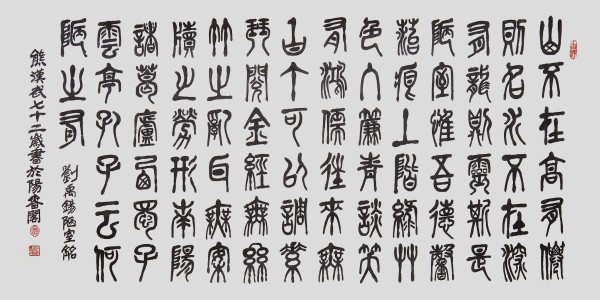 山不在高有僊
則名水不在深
有龍則靈斯是
陋室惟吾德馨
苔痕上階綠艸
色入簾青談笑
有鴻儒往來無
白丁可以調素
琴閱金經無絲
竹之亂耳無案
牘之勞形南陽
諸葛廬西蜀子
雲亭孔子云何
陋之有
劉禹錫陋室銘
熊漢武七十二歲書於陽閣